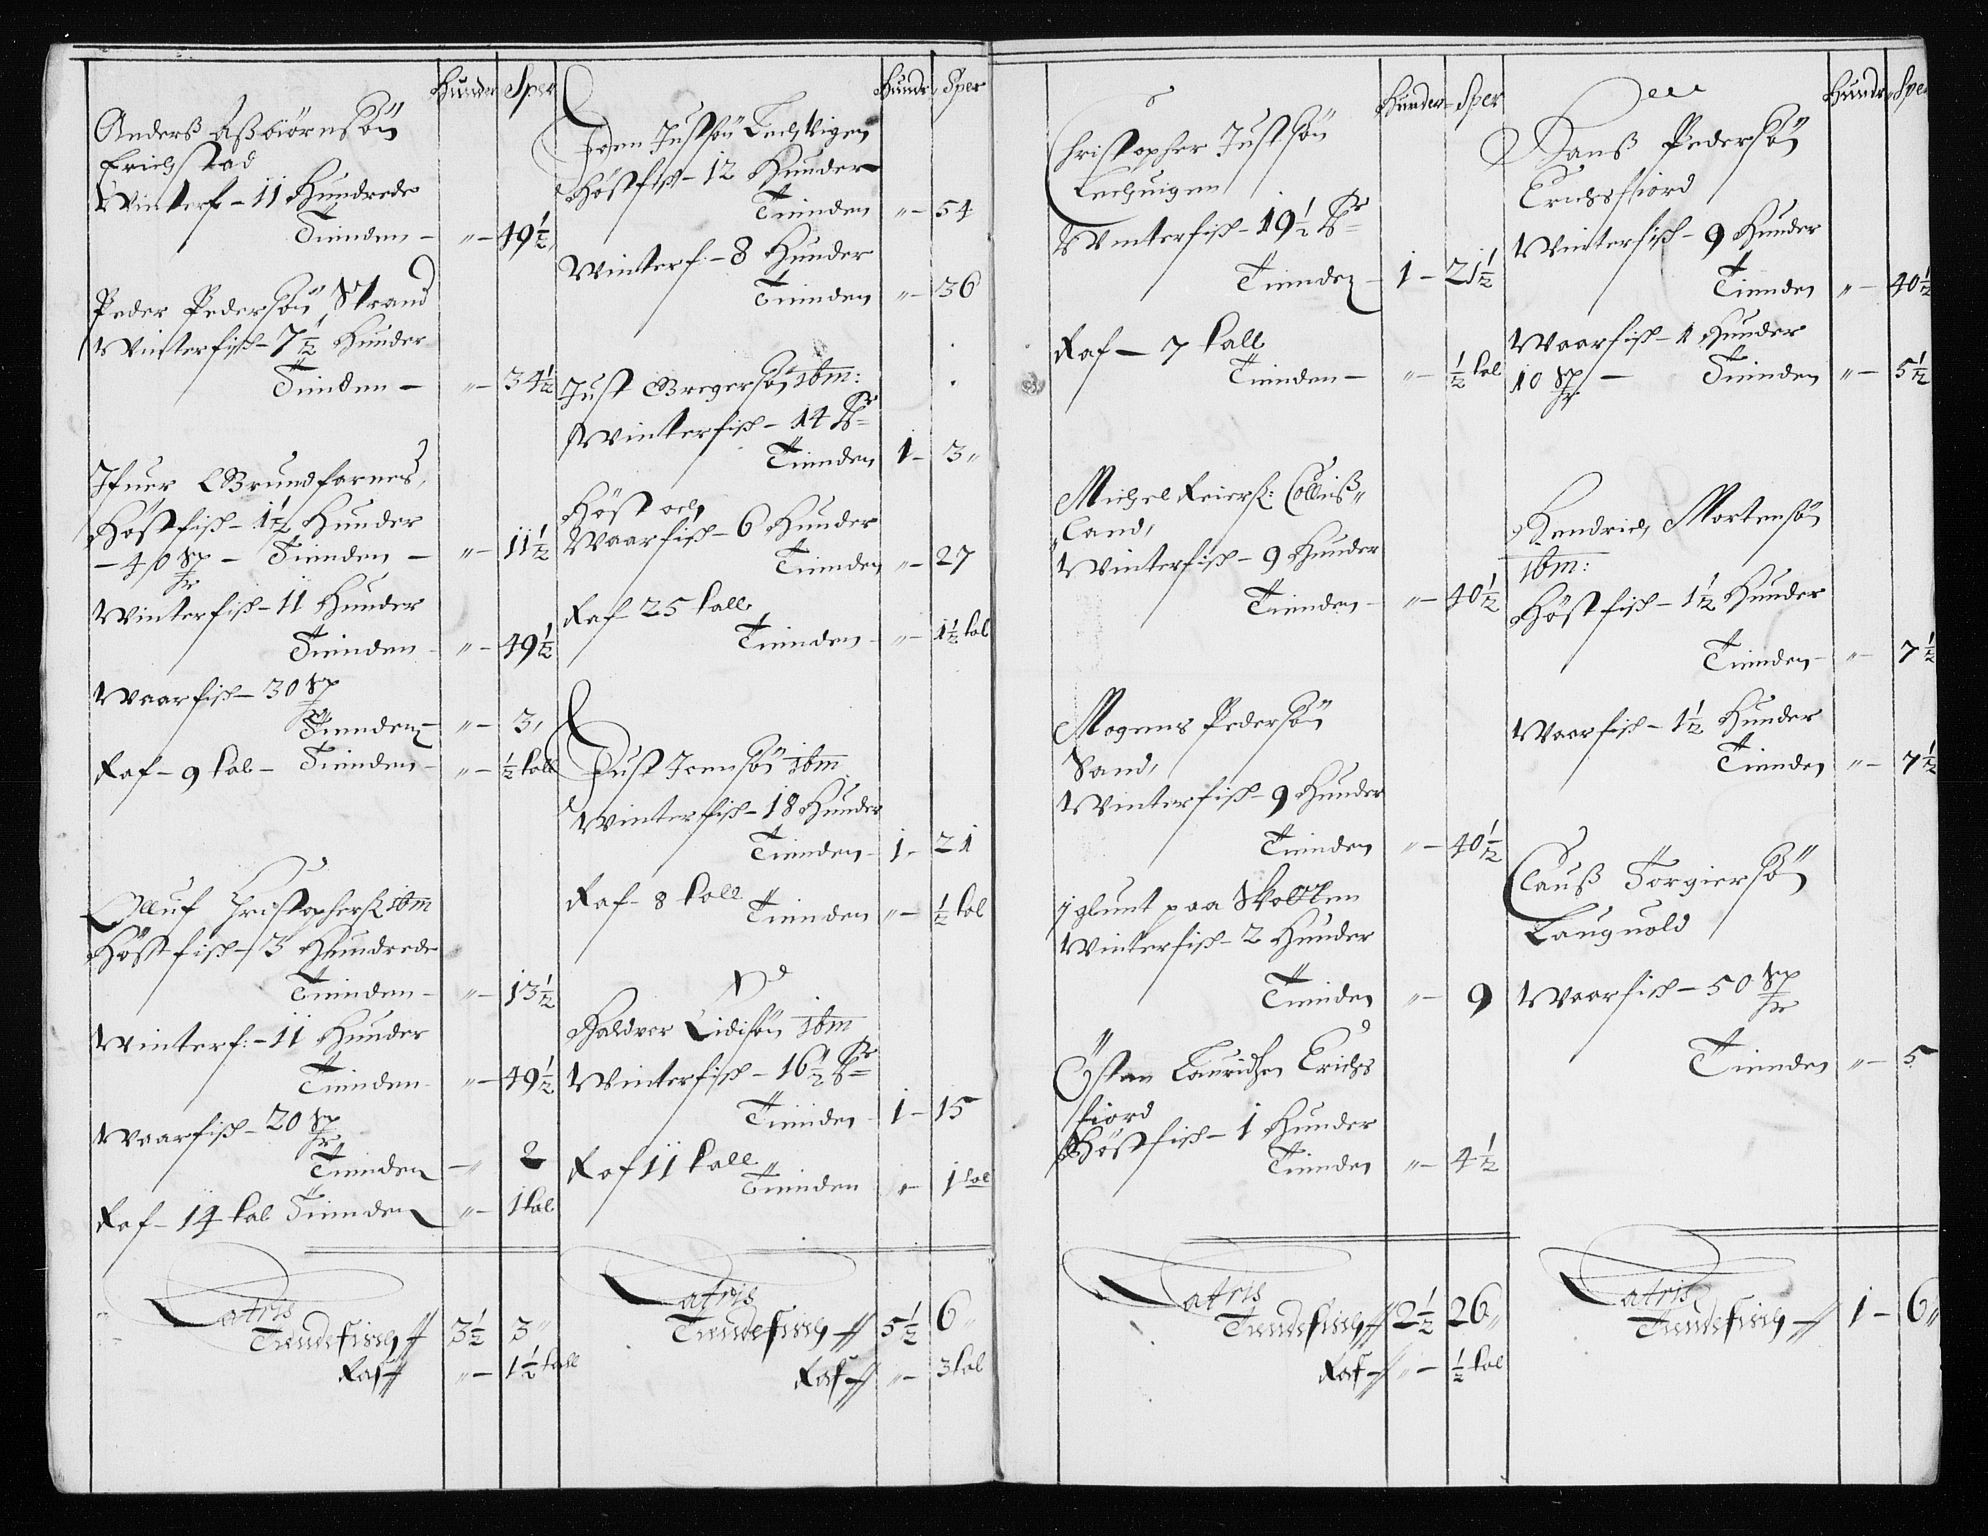 Hunder Sper
Anderß Aßbiørnsøn
Erichstad
Winterf - 11 Hundrede
Tiinden - " - 49½
Peder Pedersøn Strand
Winterfisk - 7½ Hunder
Tiinden - " - 34½
Ifuer Grundfarnes,
Høstfisk - 1½ Hunder
- 40 Sp - Tiinden - " - 11½
Winterfisk - 11 Hunder
Tiinden - " - 49½
Waarfisk - 30 Sp
Tiinden - " - 3,
Raf - 9 kal - Tiinden - " - ½ kall
Olluf Christophers: ibm
Høstfisk - 3 Hundrede
Tiinden - " - 13½
Winterf: - 11 Hunder
Tiinden - " - 49½
Waarfisk - 20 Sp
Tiinden - " 2
Raf - 14 kal Tiinden " - 1 kal
Latris
Tiendefisch 3½ 3"
Raf " - 1½ kall
Hundr Sper
Joen Justsøn Lechvigen
Høstfisk - 12 Hunder
Tiinden " - 54
Winterf - 8 Hunder
Tiinden " - 36
Just Gregersøn ibm:
Winterfisk - 14 Hr
Tiinden 1 - 3"
Høst och
Waarfisk - 6 Hunder
Tiinden " - 27
Raf 25 kall
Tiinden - " - 1½ kal
Just Joensøn ibm
Winterfisk - 18 Hunder
Tiinden - 1 - 21
Raf - 8 kall
Tiinden " - ½ kal
Haldvor Lidisøn ibm
Winterfisk - 16½ Hr
Tiinden - 1 - 15
Raf 11 kall
Tiinden " - 1 kal
Latris
Tiendefisch 5½ 6"
Raf " - 3 kal
Hunder Sper
Christopher Justsøn
Lechuigen
Winterfisk - 19½ Hr
Tiinden - 1 - 21½
Raf - 7 kall
Tiinden - " - ½ kal
Michel Reiers: Colluiß"
land,
Winterfisk - 9 Hunder
Tiinden - " - 40½
Mogens Pedersøn
Sand,
Winterfisk - 9 Hunder
Tiinden " - 40½
j glunt paa Skolten
Winterfisk - 2 Hunder
Tiinden " - 9
Østen Lauridzen Erichs
fiord
Høstfisk - 1 Hunder
Tiinden " - 4½
Latris
Tiendefisch 2½ 26"
Raf " - ½ kal
Hundr Sper
Hanß Pedersøn
Erichsfiord
Winterfisk - 9 Hunder
Tiinden " - 40½
Waarfisk - 1 Hunder
10 Sp - Tiinden " - 5½
Hendrich Mortensøn
ibm:
Høstfisk - 1½ Hunder
Tiinden - " - 7½
Waarfisk - 1½ Hunder
Tiinden " - 7½
Clauß Torgiersøn
Lauguold
Waarfisk - 50 Sp
Tiinden " - 5
Latris
Tiendefisch 1 - 6"